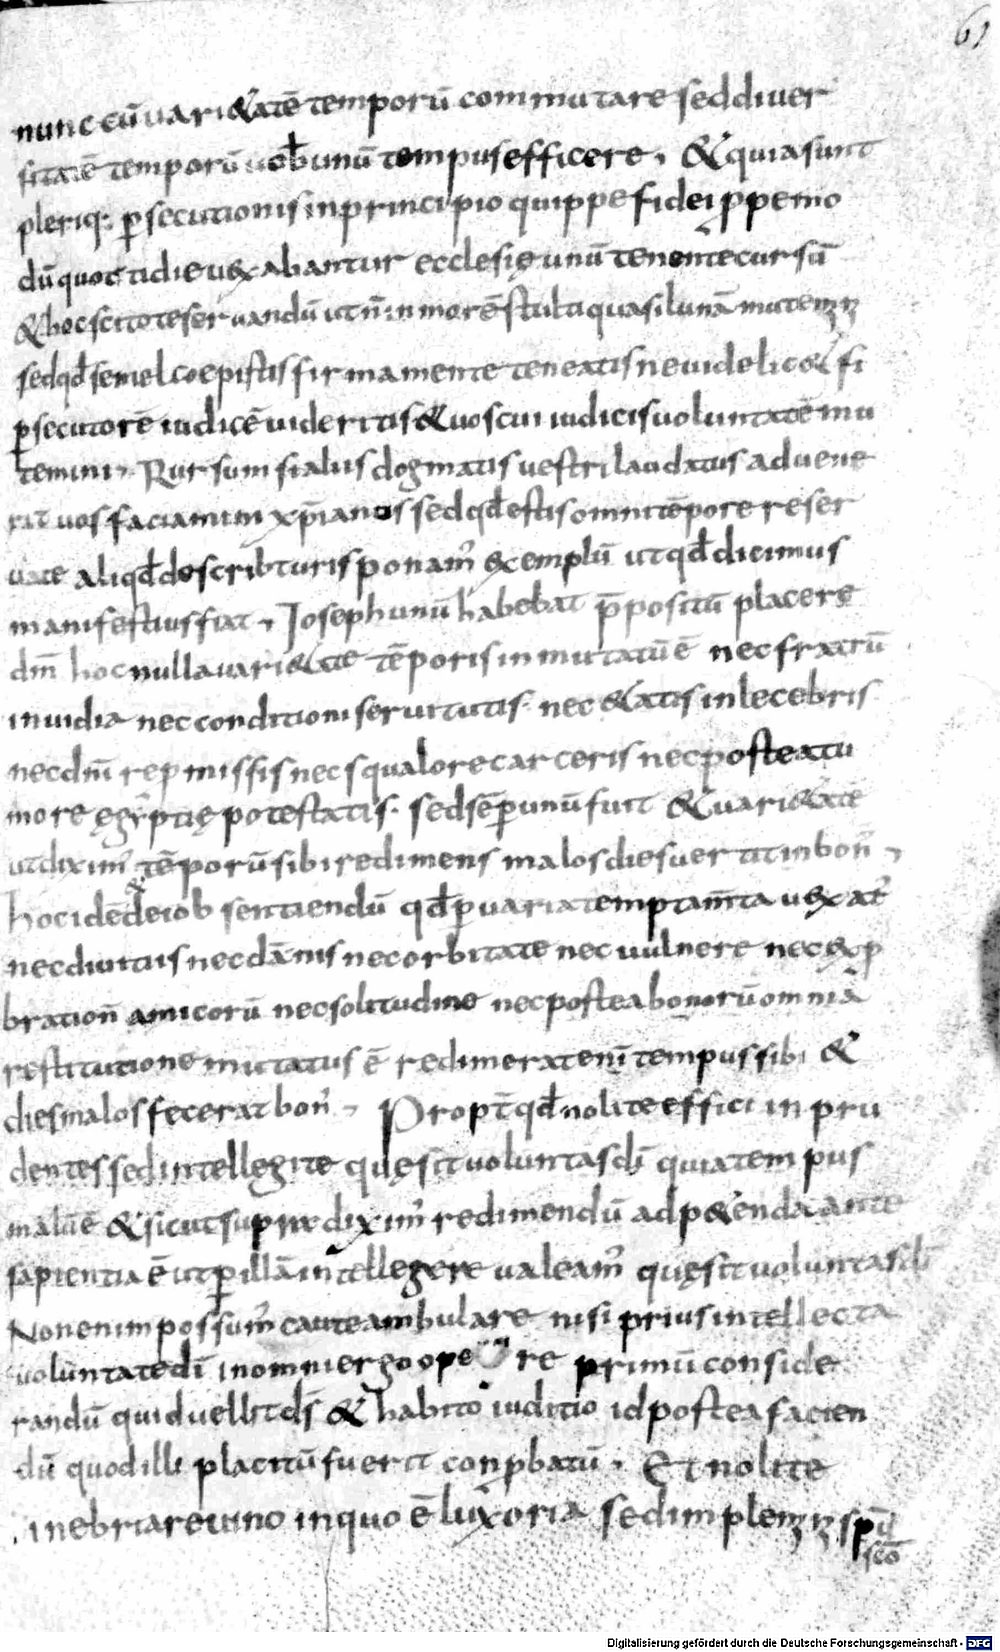 61
nunc cū uari&atē temporū commutare sed diuer
sitatē temporū uob unū tempus efficere. & quia sunt
pleriq: ꝑsecutionis in principio quippe fidei ꝓpemo
dū quottidie uexabantur ecclesię unū tenente cursū
& hoc scitote seruandū ut n̄ in morē stulti quasi luna mutemꝫ
sed qđ semel coepistis firma mente teneatis ne uidelic& si
ꝑsecutorē iudicē uideritis & uos cui iudicis uoluntatē mu
temini. Rursum si alius dogmatis uestri laudatus aduene
rit uos faciamini xp̄ianos sed qđ estis omni tēpore reser
uate aliqđ de scribturis ponam' exemplū ut qđ dicimus
manifestius fiat. Ioseph unū habebat p̄positū placere
dm̄ hoc nulla uari&ate tēporis inmutatū ē nec fratrū
inuidia nec conditioni seruitutis. nec &atis inlecebris
nec dm̄ repmissis nec squalore carceris nec postea tu
more ęgyptię potestatis. sed sēꝑ unū fuit & uari&ate
ut dixim' tēporū sibi redimens malos dies uertit in bon'.
hoc idē & de iob sentiendū qđ ꝑ uaria temptam̄ta uexat'
nec diuitiis nec dānis nec orbitate nec uulnere nec exp
bration̄ amicorū nec solitudine nec postea bonorū omniā
restitutione mutatus ē redimerat eni tempus sibi &
dies malos fecerat bon'. Propt̄ qđ nolite effici inpru
dentes sed intellegite quę sit uoluntas dī quia tempus
malū ē & sicut supra dixim' redimendū adp&enda ante
sapientia ē ut ꝑ illā intellegere ualeam' quę sit uoluntas dī
Non enim possum' caute ambulare nisi prius intellecta
uoluntate dī in omni ergo opere primū conside
randū quid uellit ds̄ & habito iuditio id postea facien
dū quod illi placitū fuerit conꝓbatū. Et nolite
inebriare uino in quo ē luxoria sed implemꝫ spū
sc̄o
Digitalisierung gefördert durch die Deutsche Forschungsgemeinschaft - DFG